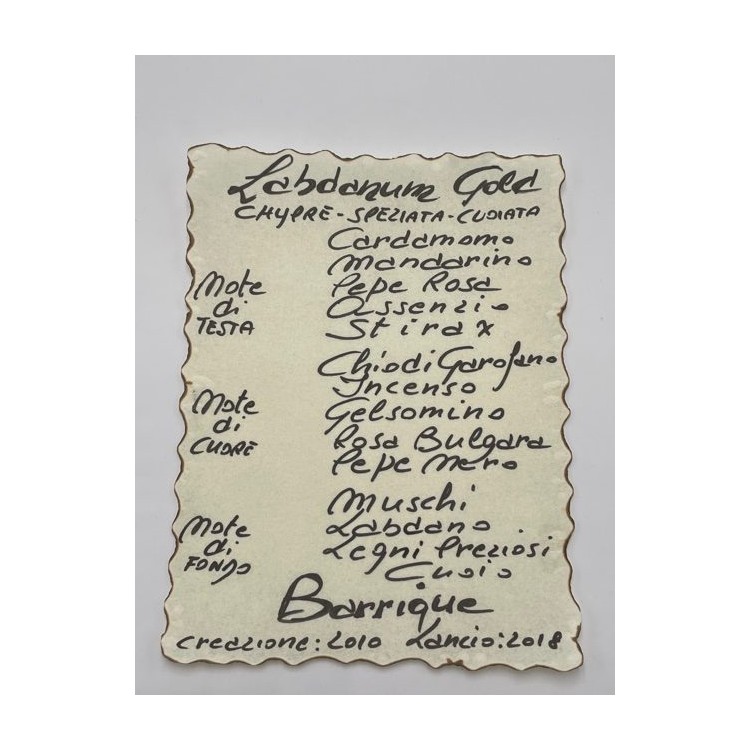 Labdanum Gold
CHYPRE - SPEZIATA - CUOIATA
Note di TESTA
Cardamomo
Mandarino
Pepe Rosa
Assenzio
Stirax
Note di CUORE
Chiodi Garofano
Incenso
Gelsomino
Rosa Bulgara
Pepe Nero
Note di FONDO
Muschi
Labdano
Legni Preziosi
Cuoio
Barrique
Creazione: 2010 Lancio: 2018